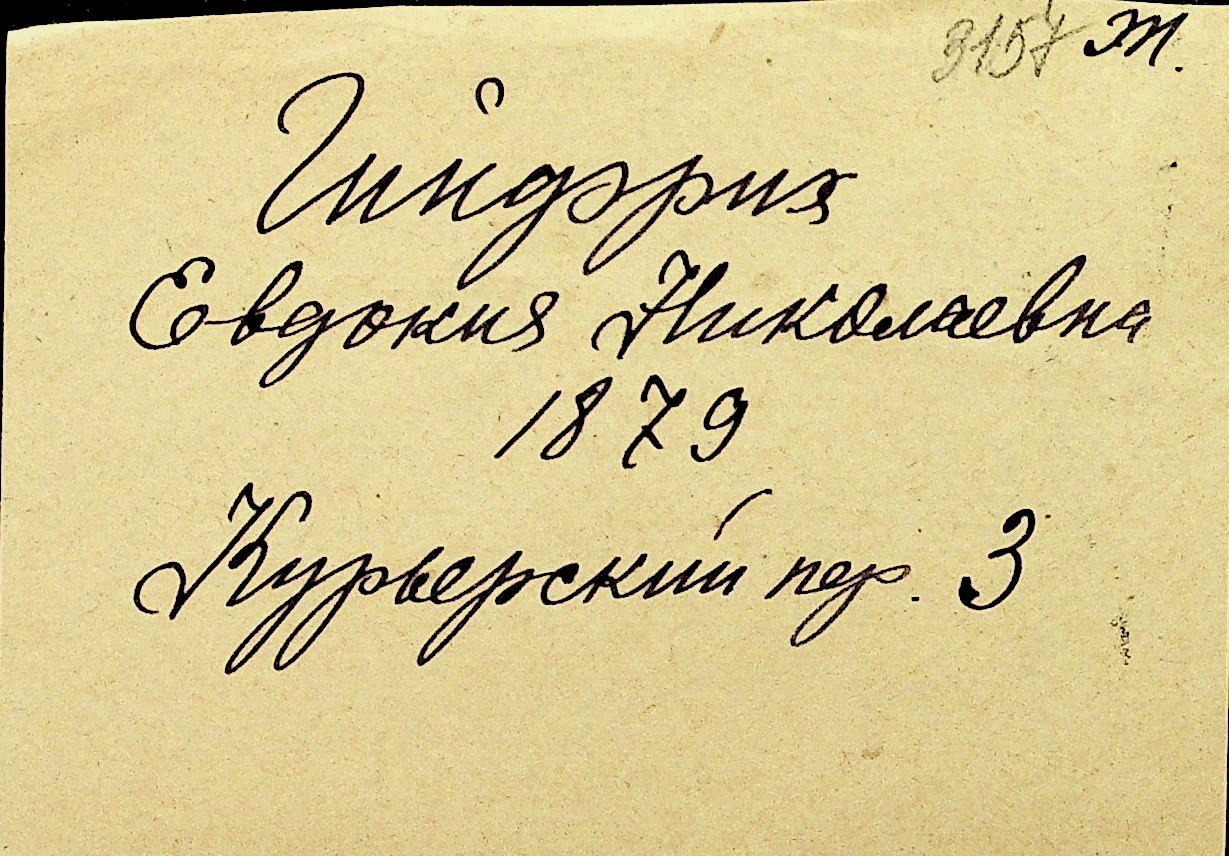 3157 т.
Гийдэрих
Евдокия Николаевна
1879
Курьерский пер. 3